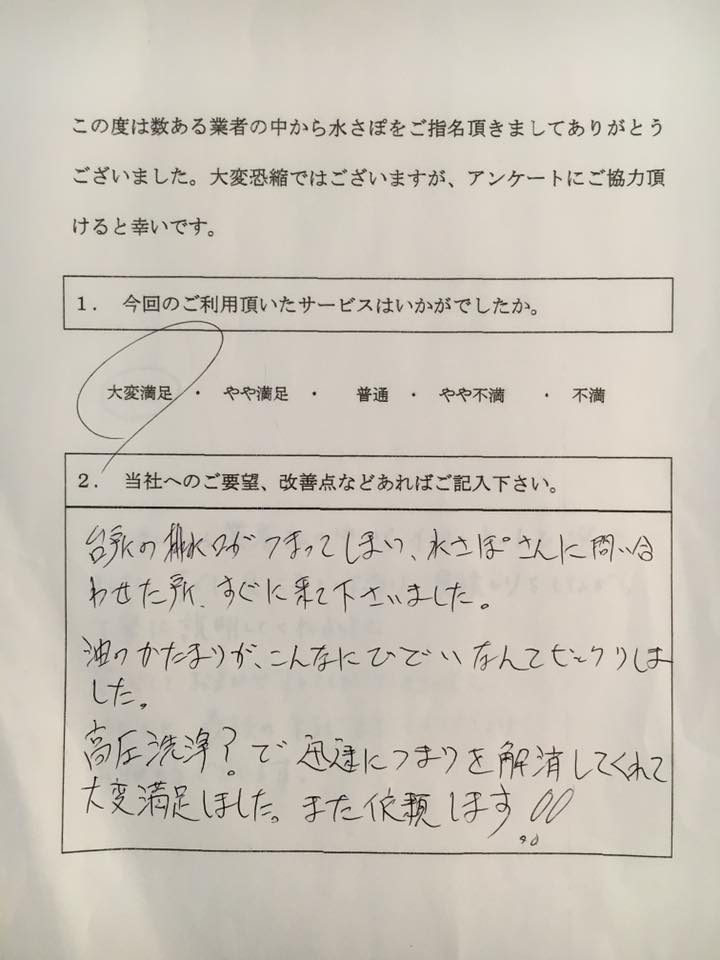 この度は数ある業者の中から水さぽをご指名頂きましてありがとう
ございました。大変恐縮ではございますが、アンケートにご協力頂
けると幸いです。
1. 今回のご利用頂いたサービスはいかがでしたか。
大変満足 ・ やや満足 ・ 普通 ・ やや不満 ・ 不満
2. 当社へのご要望、改善点などあればご記入下さい。
台所の排水口がつまってしまい、水さぽさんに問い合
わせた所、すぐに来て下さいました。
油のかたまりが、こんなにひどいなんてビックリしま
した。
高圧洗浄?で迅速につまりを解消してくれて
大変満足しました。また依頼します!!